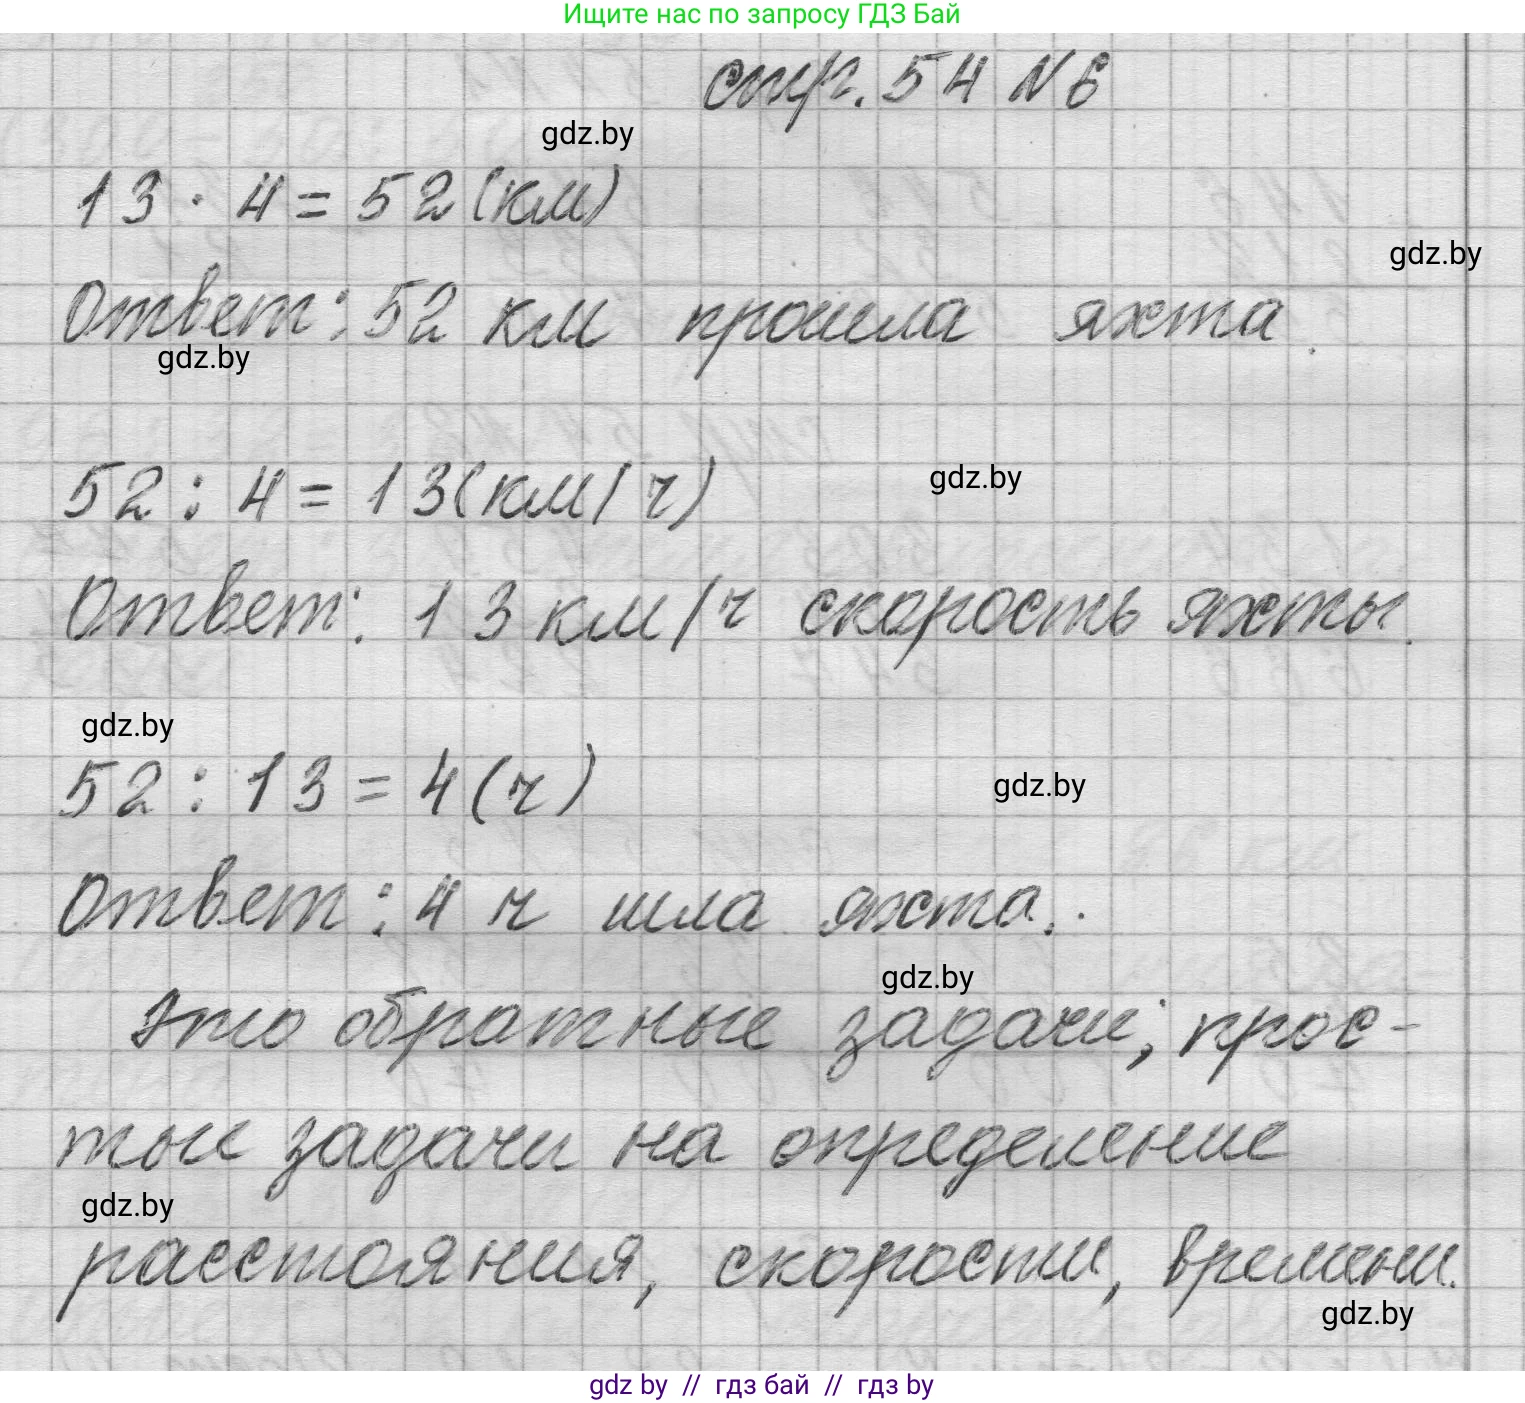 Ищите нас по запросу ГДЗ Бай
стр. 54 N 6
gdz.by
13 · 4 = 52 (км)
gdz.by
Ответ: 52 км прошла яхта.
gdz.by
52 : 4 = 13 (км/ч)
gdz.by
Ответ: 13 км/ч скорость яхты.
gdz.by
52 : 13 = 4 (ч)
gdz.by
Ответ: 4 ч шла яхта.
gdz.by
Это обратные задачи; прос-
тые задачи на определение
gdz.by
расстояния, скорости, времени.
gdz.by
gdz by // гдз бай // гдз by